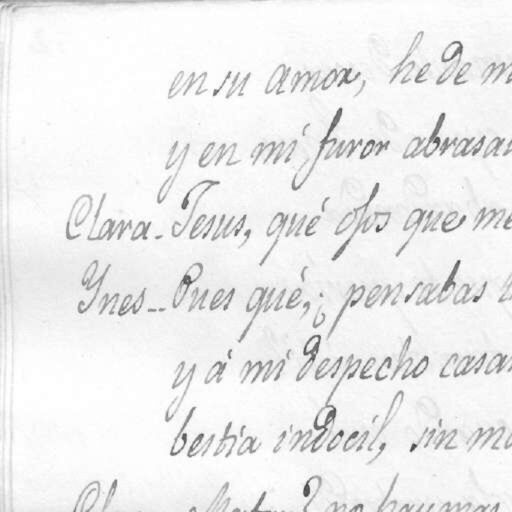 en su amor, he de m
y en mi furor abrasar
Clara - Jesus, qué ojos que me
Ynes -- Pues qué, ¿ pensabas
y á mi despecho casar
bestia indocil, sin
no hay mas